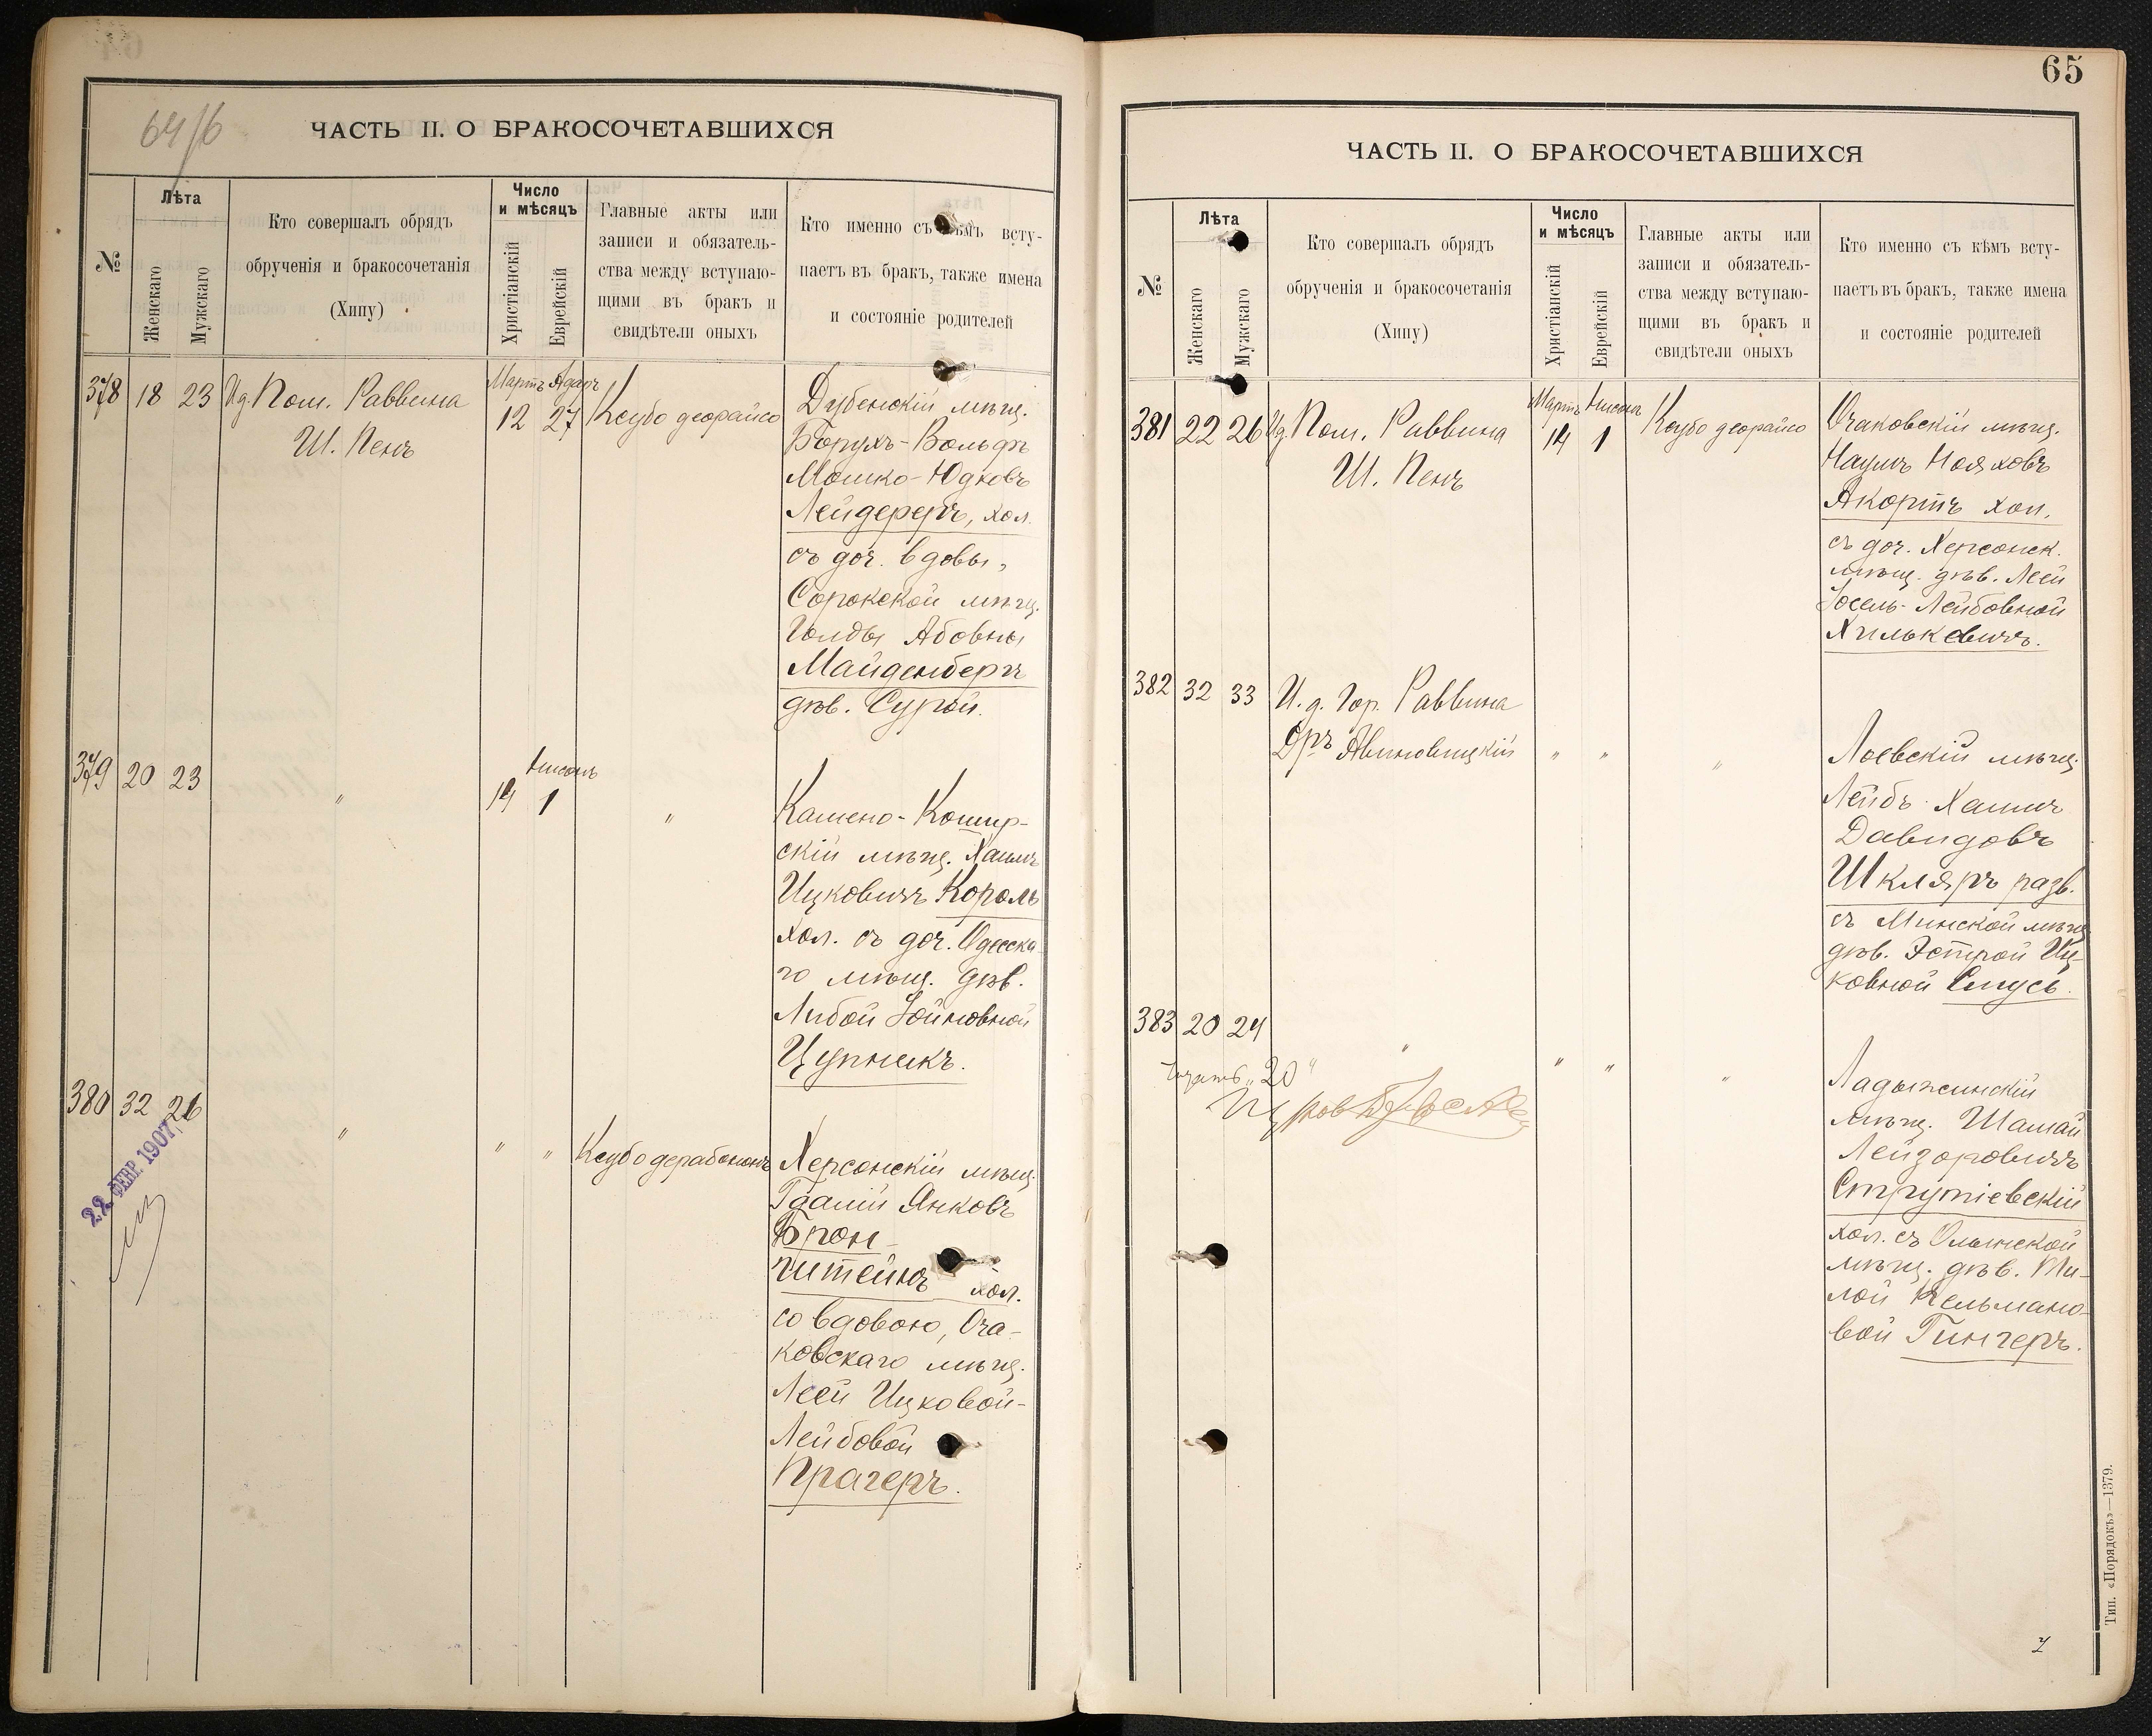 64/б
ЧАСТЬ II. О БРАКОСОЧЕТАВШИХСЯ
№
Лѣта
Женскаго
Мужскаго
Кто совершалъ обрядъ
обрученія и бракосочетанія
(Хипу)
Число
и мѣсяцъ
Христіанскій
Еврейскій
Главные акты или
записи и обязатель-
ства между вступаю-
щими въ бракъ и
свидѣтели оныхъ
Кто именно съ кѣмъ всту-
паетъ въ бракъ, также имена
и состояніе родителей
378 18 23 И.д. Пом. Раввина
Ш. Пенъ
Мартъ Адаръ
12 27
Ксубо деорайсо
Дубенскій мѣщ.
Борухъ-Вольфъ
Мошко-Юдковъ
Лейдереръ, хол.
съ доч. вдовы,
Сорокской мѣщ.
Голды Абовны
Майденбергъ
дѣв. Сурой.
379 20 23 "
Нисонъ
14 1
"
Камено-Кошир-
скій мѣщ. Хаимъ
Ицковичъ Король
хол. съ доч. Одесска-
го мѣщ. дѣв.
Либой Зойновной
Цупникъ.
380 32 26 " " "
Ксубо дерабононъ
Херсонскій мѣщ.
Гдалій Янковъ
Брон-
штейнъ хол.
со вдовою, Оча-
ковскаго мѣщ.
Леей Ицковой-
Лейбовой
Прагеръ.
22 ФЕВР. 1907
65
ЧАСТЬ II. О БРАКОСОЧЕТАВШИХСЯ
№
Лѣта
Женскаго
Мужскаго
Кто совершалъ обрядъ
обрученія и бракосочетанія
(Хипу)
Число
и мѣсяцъ
Христіанскій
Еврейскій
Главные акты или
записи и обязатель-
ства между вступаю-
щими въ бракъ и
свидѣтели оныхъ
Кто именно съ кѣмъ всту-
паетъ въ бракъ, также имена
и состояніе родителей
381 22 26 И.д. Пом. Раввина
Ш. Пенъ
Мартъ Нисонъ
14 1
Ксубо деорайсо
Очаковскій мѣщ.
Наумъ Нояховъ
Акортъ хол.
съ доч. Херсонск.
мѣщ. дѣв. Леей
Іосель-Лейбовной
Хилькевичъ.
382 32 33 И. д. Гор. Раввина
Дръ Авиновицкій " " "
Лоевскій мѣщ.
Лейбъ Хаимъ
Давидовъ
Шкляръ разв.
съ Минской мѣщ.
дѣв. Эстрой Иц-
ковной Снусь.
383 20 24 " " " "
"20"
Ладыжинскій
мѣщ. Шамай
Лейзоровичъ
Струтіевскій
хол. съ Олынской
мѣщ. дѣв. Ти-
лой Кельмано-
вой Гингеръ.
Тип. «Порядокъ»—1379.